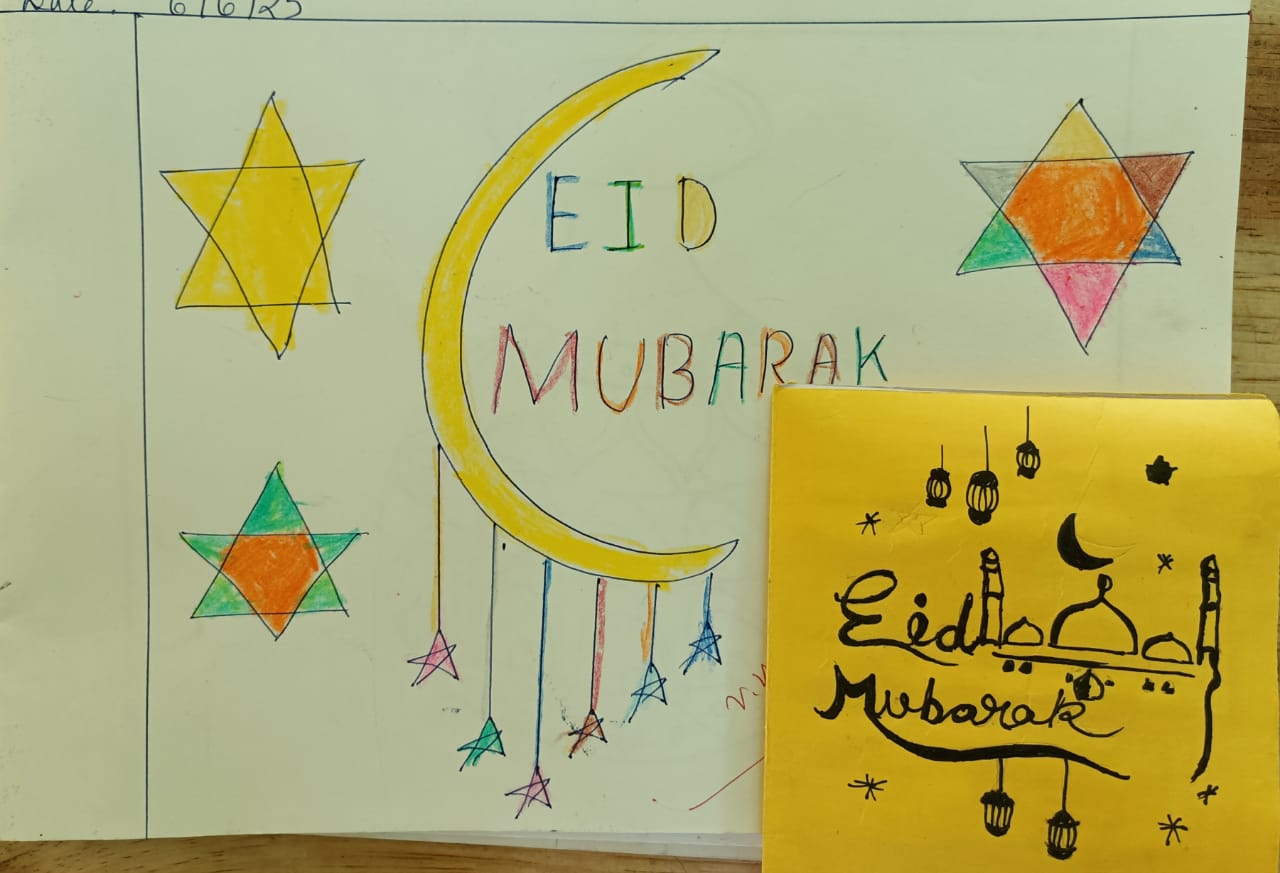 Date. 6/6/25
EID
MUBARAK
Eid
Mubarak